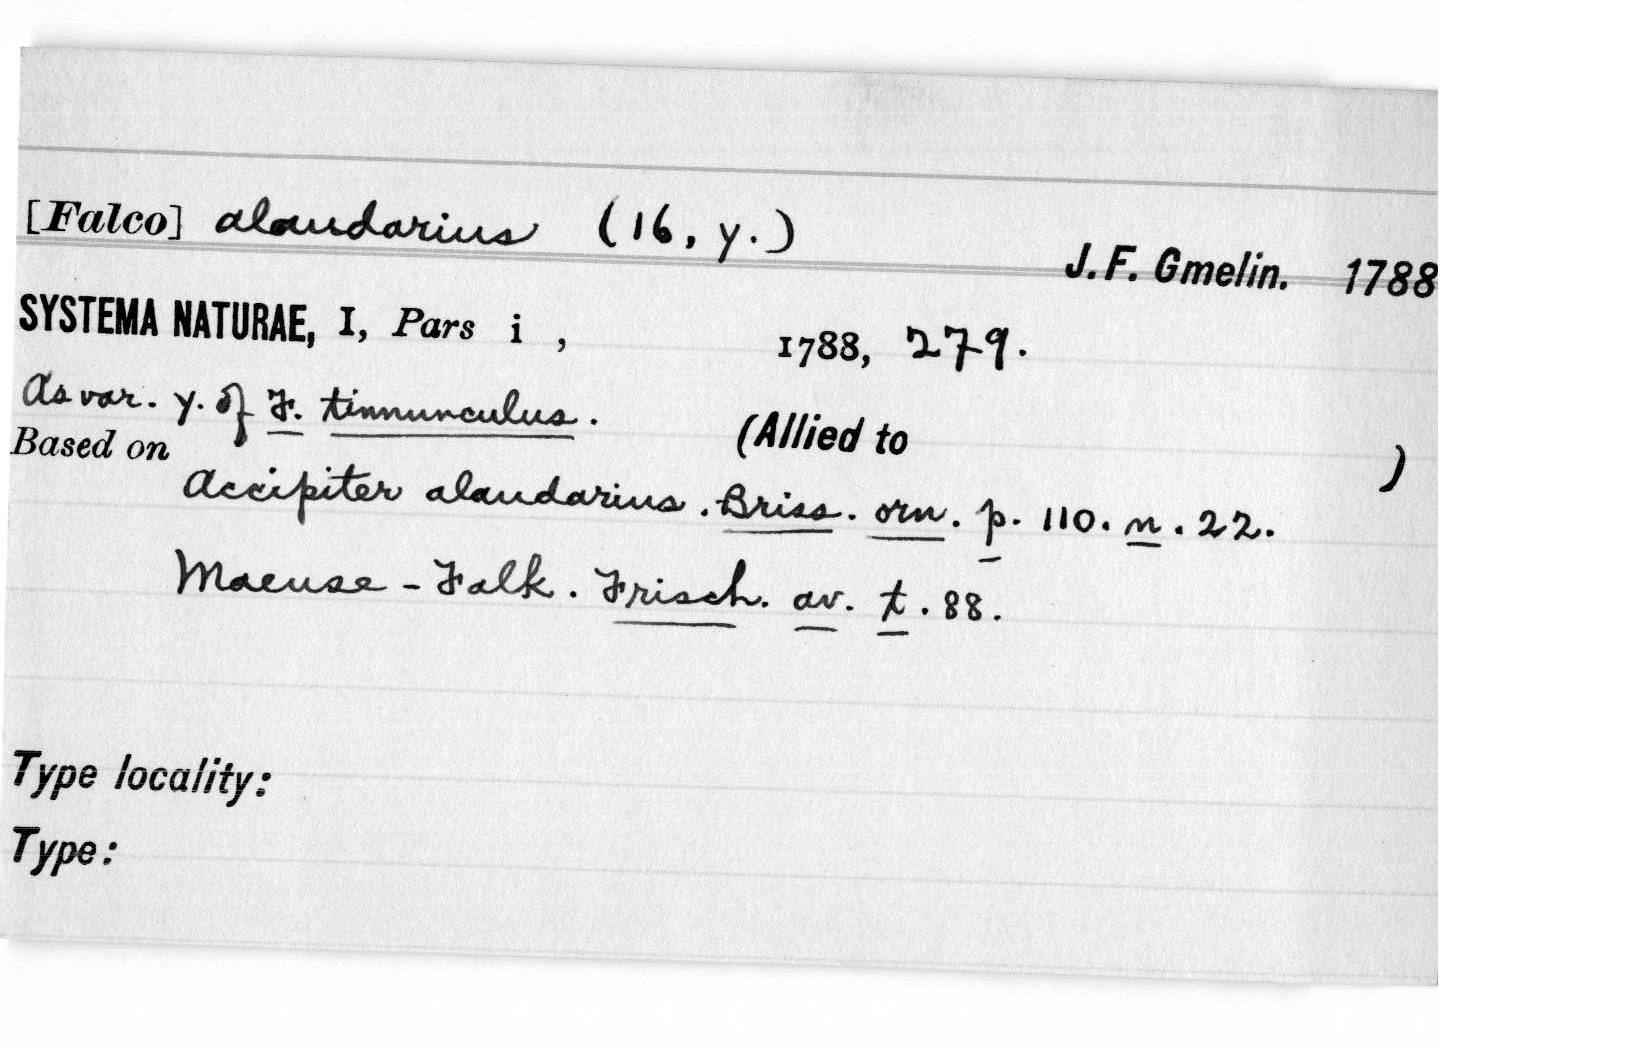 [Falco] alaudarius (16, y.)
J. F. Gmelin. 1788
SYSTEMA NATURAE, I, Pars i , 1788, 279.
As var. y. of F. tinnunculus.
(Allied to )
Based on
Accipiter alaudarius. Briss. orn. p. 110. n. 22.
Maeuse-Falk. Frisch. av. t. 88.
Type locality:
Type: